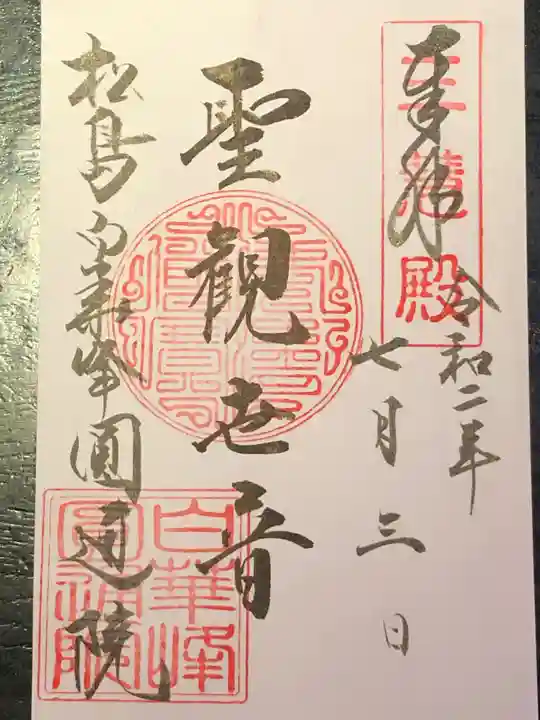 奉拝
三慧殿
令和二年
七月三日
聖観世音
松島白華峰圓通院
白華峰
圓通院